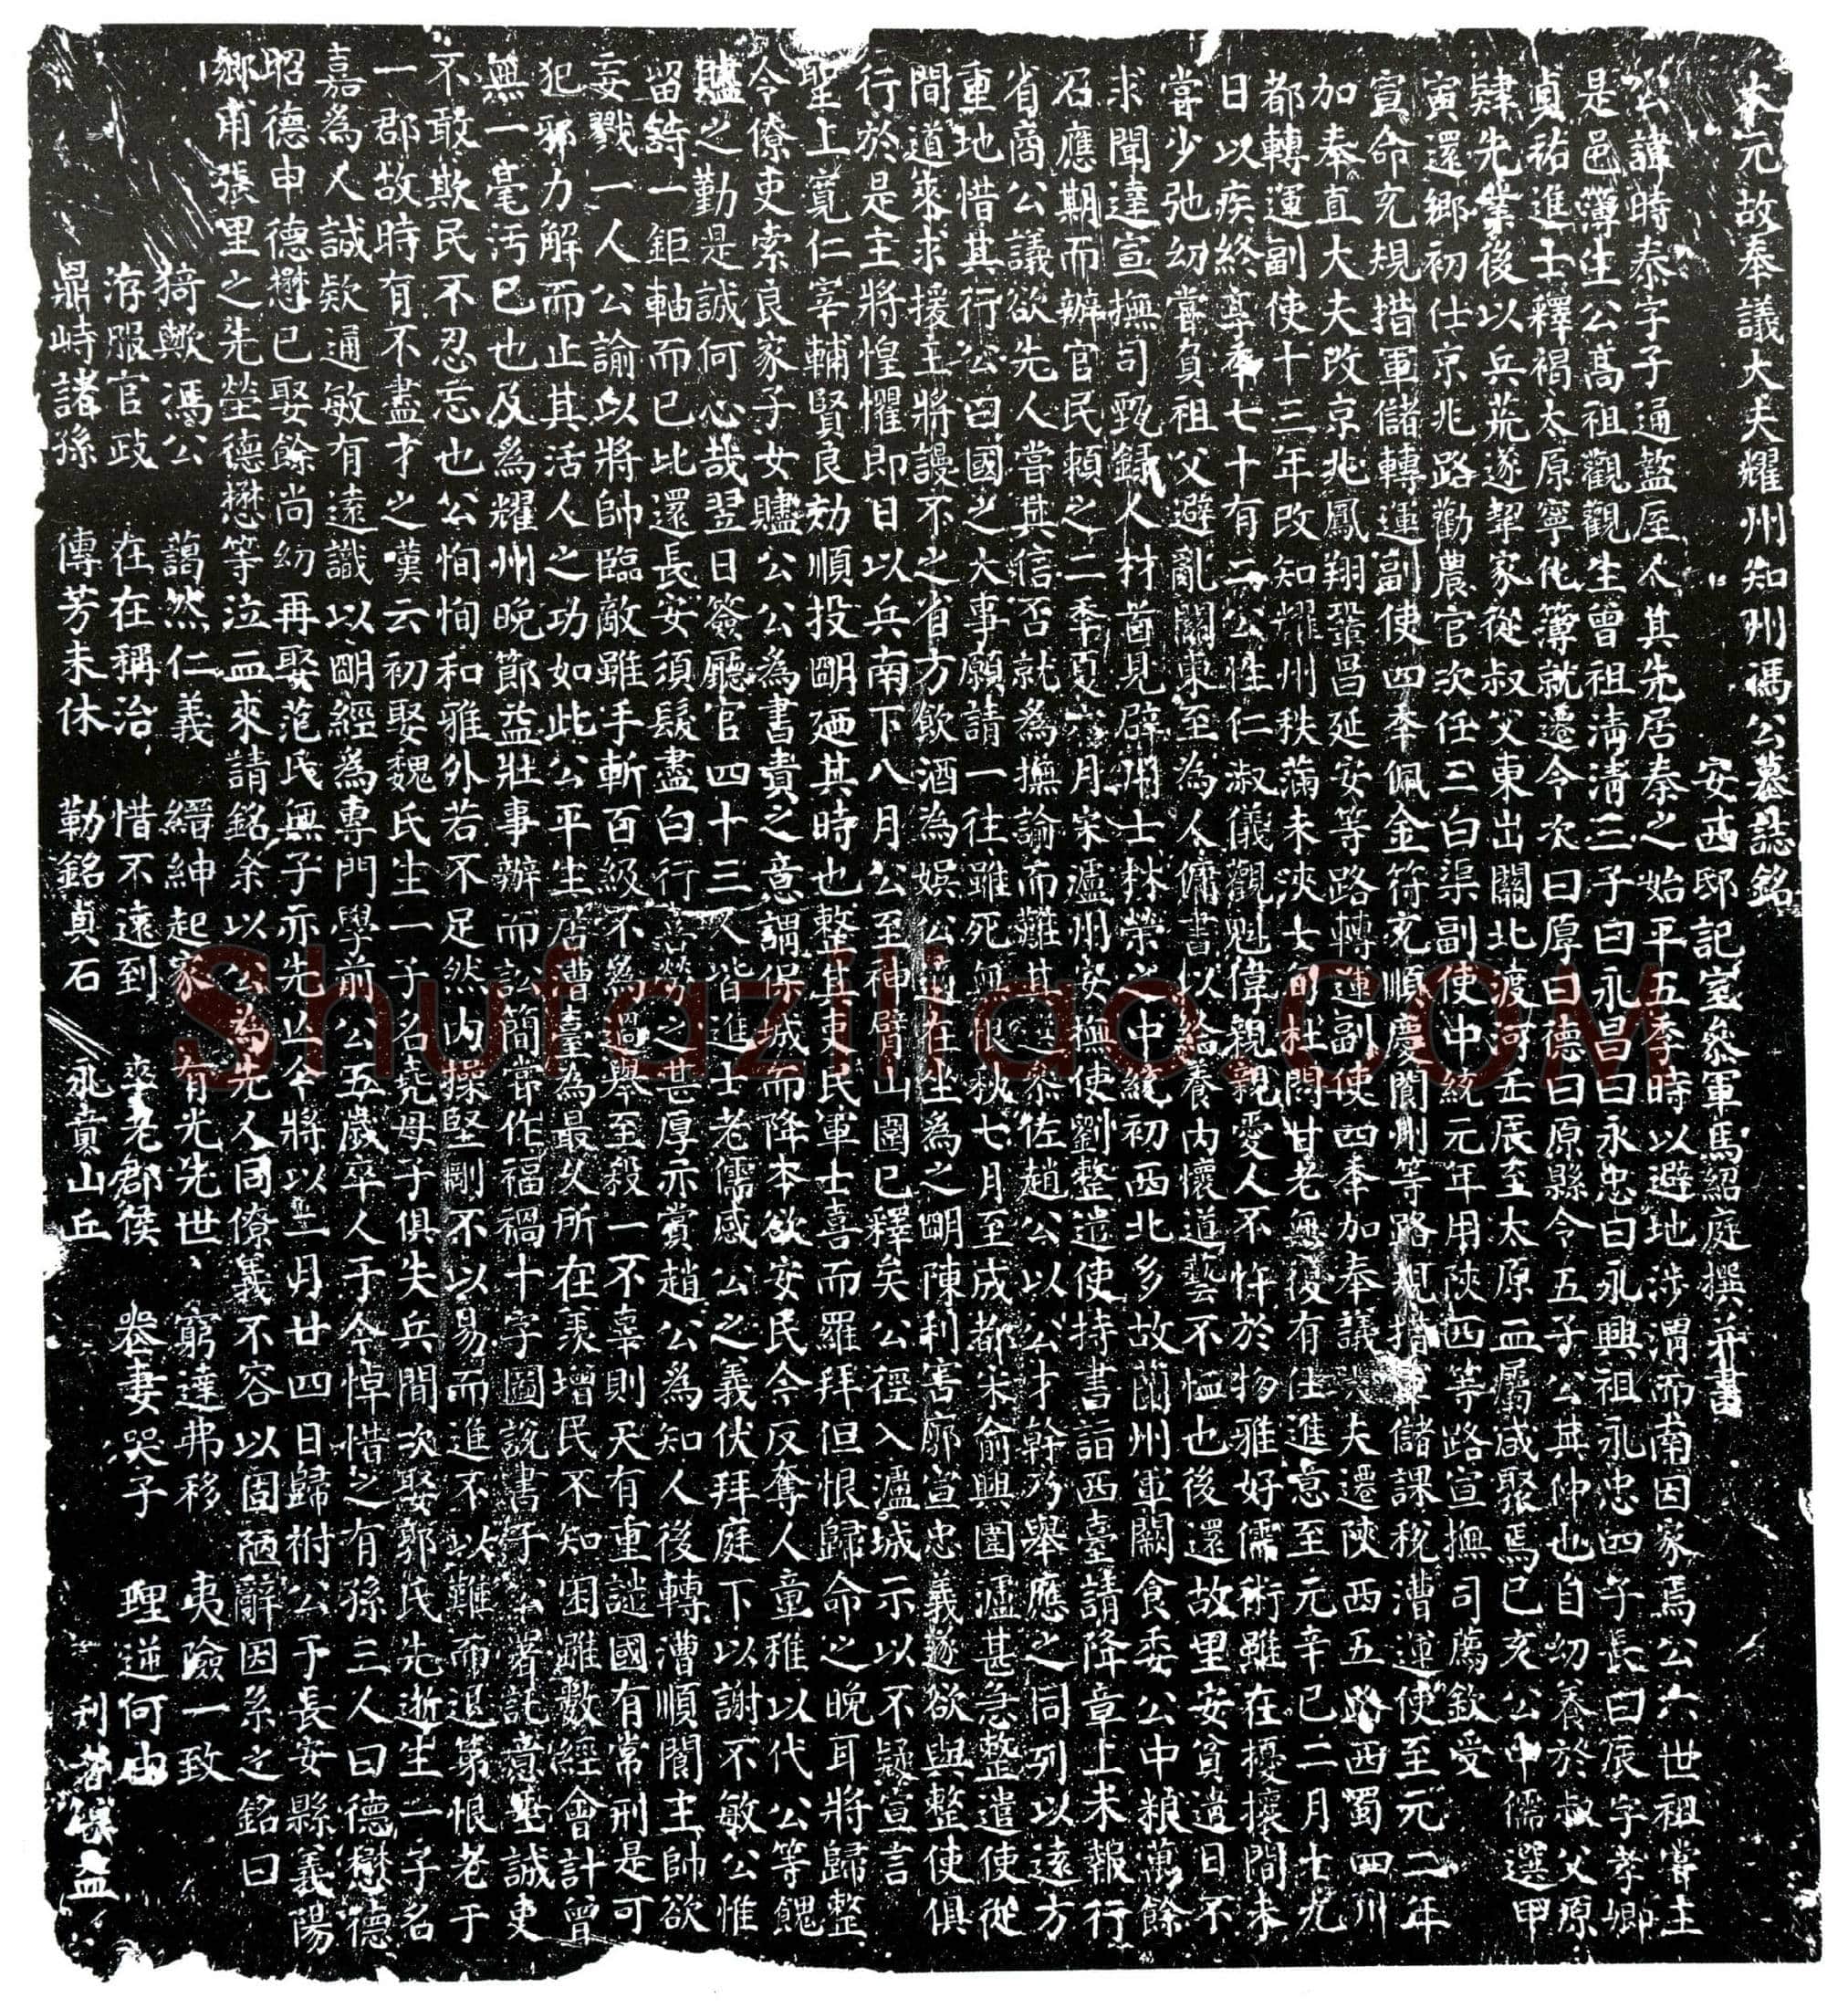 大元故奉議大夫耀州知州馮公墓誌銘
安西邸記室參軍馬紹庭撰并書
公諱時泰字子通盩厔人其先居秦之始平五季時以避地涉渭而南因家焉公六世祖嘗主
是邑簿生公髙祖觀觀生曾祖淸淸三子曰永昌曰永忠曰永興祖永忠四子長曰辰字孝卿
貞祐進士釋褐太原寧化簿就遷令次曰厚曰德曰原縣令五子公其仲也自幼養於叔父原
肄先業後以兵荒遂挈家從叔父東出關北渡河壬辰至太原血屬咸聚焉已充公中儒選甲
寅還鄉初仕京兆路勸農官次任三白渠副使中統元年用陝西等路宣撫司薦欽受
宣命充規措軍儲轉運副使四年佩金符充順慶閬剛等路規措軍儲課稅漕運使至元二年
加奉直大夫改京兆鳳翔鞏昌延安等路轉運副使四年加奉議大夫遷陝西五路西蜀四川
都轉運副使十三年改知耀州秩滿未浹士旳杜閤甘老無復有仕進意至元辛巳二月十九
日以疾終享年七十有二公性仁淑儀觀魁偉親親愛人不忤於物雅好儒術雖在擾攘間未
嘗少弛幼嘗負祖父避亂關東至為人傭書以給養內懷道藝不慍也後還故里安貧遺日不
求聞達宣撫司甄録人材首見辟用士林榮之中統初西北多故蘭州軍闕食委公中粮萬餘
石應期而辦官民頼之二年夏六月宋瀘州安撫使劉整遣使持書詣西臺請降章上未報行
省商公議欲先人嘗其信否就為撫諭而難其選叅佐趙公以公才幹乃舉應之同列以遠方
重地惜其行公曰國之大事願請一往雖死無恨秋七月至成都宋俞興圍瀘甚急整遣使從
間道來求援主將謾不之省方飲酒為娯公適在坐為之明陳利害廓宣忠義遂欲與整使俱
行於是主將惶懼即日以兵南下八月公至神臂山圍已釋矣公徑入瀘城示以不疑宣言
聖上寛仁宰輔賢良効順投明廼其時也整其吏民軍士喜而羅拜但恨歸命之晚耳將歸整
令僚吏索良家子女贐公公為書責之意謂保城而降本欲安民今反奪人童稚以代公等餽
贐之勤是誠何心哉翌日簽廳官四十三人皆進士老儒感公之義伏拜庭下以謝不敏公惟
留詩一鉅軸而已比還長安須髮盡白行勞之甚厚亦賞趙公為知人後轉漕順閬主帥欲
妄戮一人公諭以將帥臨敵雖手斬百級不為過舉至殺一不辜則天有重譴國有常刑是可
犯邪力解而止其活人之功如此公平生居漕臺為最久所在羨增民不知困雖數經會計曾
無一毫汚已也及為耀州晩節益壯事辦而訟簡嘗作福禍十字圖說書于公署託意至誠吏
不敢欺民不忍忘也公恂恂和雅外若不足然內操堅剛不以易而進不以難而退第恨老于
一郡故時有不盡才之嘆云初娶魏氏生一子名堯母子俱失兵間次娶郭氏先逝生一子名
嘉為人誠欵通敏有遠識以明經為專門學前公五歲卒人于今悼惜之有孫三人曰德懋德
昭德申德懋已娶餘尚幼再娶范氏無子亦先亡今將以三月廿四日歸祔公于長安縣義陽
鄉甫張里之先塋德懋等泣血來請銘余以公為先人同僚義不容以固陋辭因系之銘曰
猗歟馮公 藹然仁義 縉紳起家 有光先世 窮達弗移 夷險一致
洊服官政 在在稱治 惜不遠到 來老郡侯 喪妻哭子 理逆何由
鼎峙諸孫 傳芳未休 勒銘貞石 永賁山丘